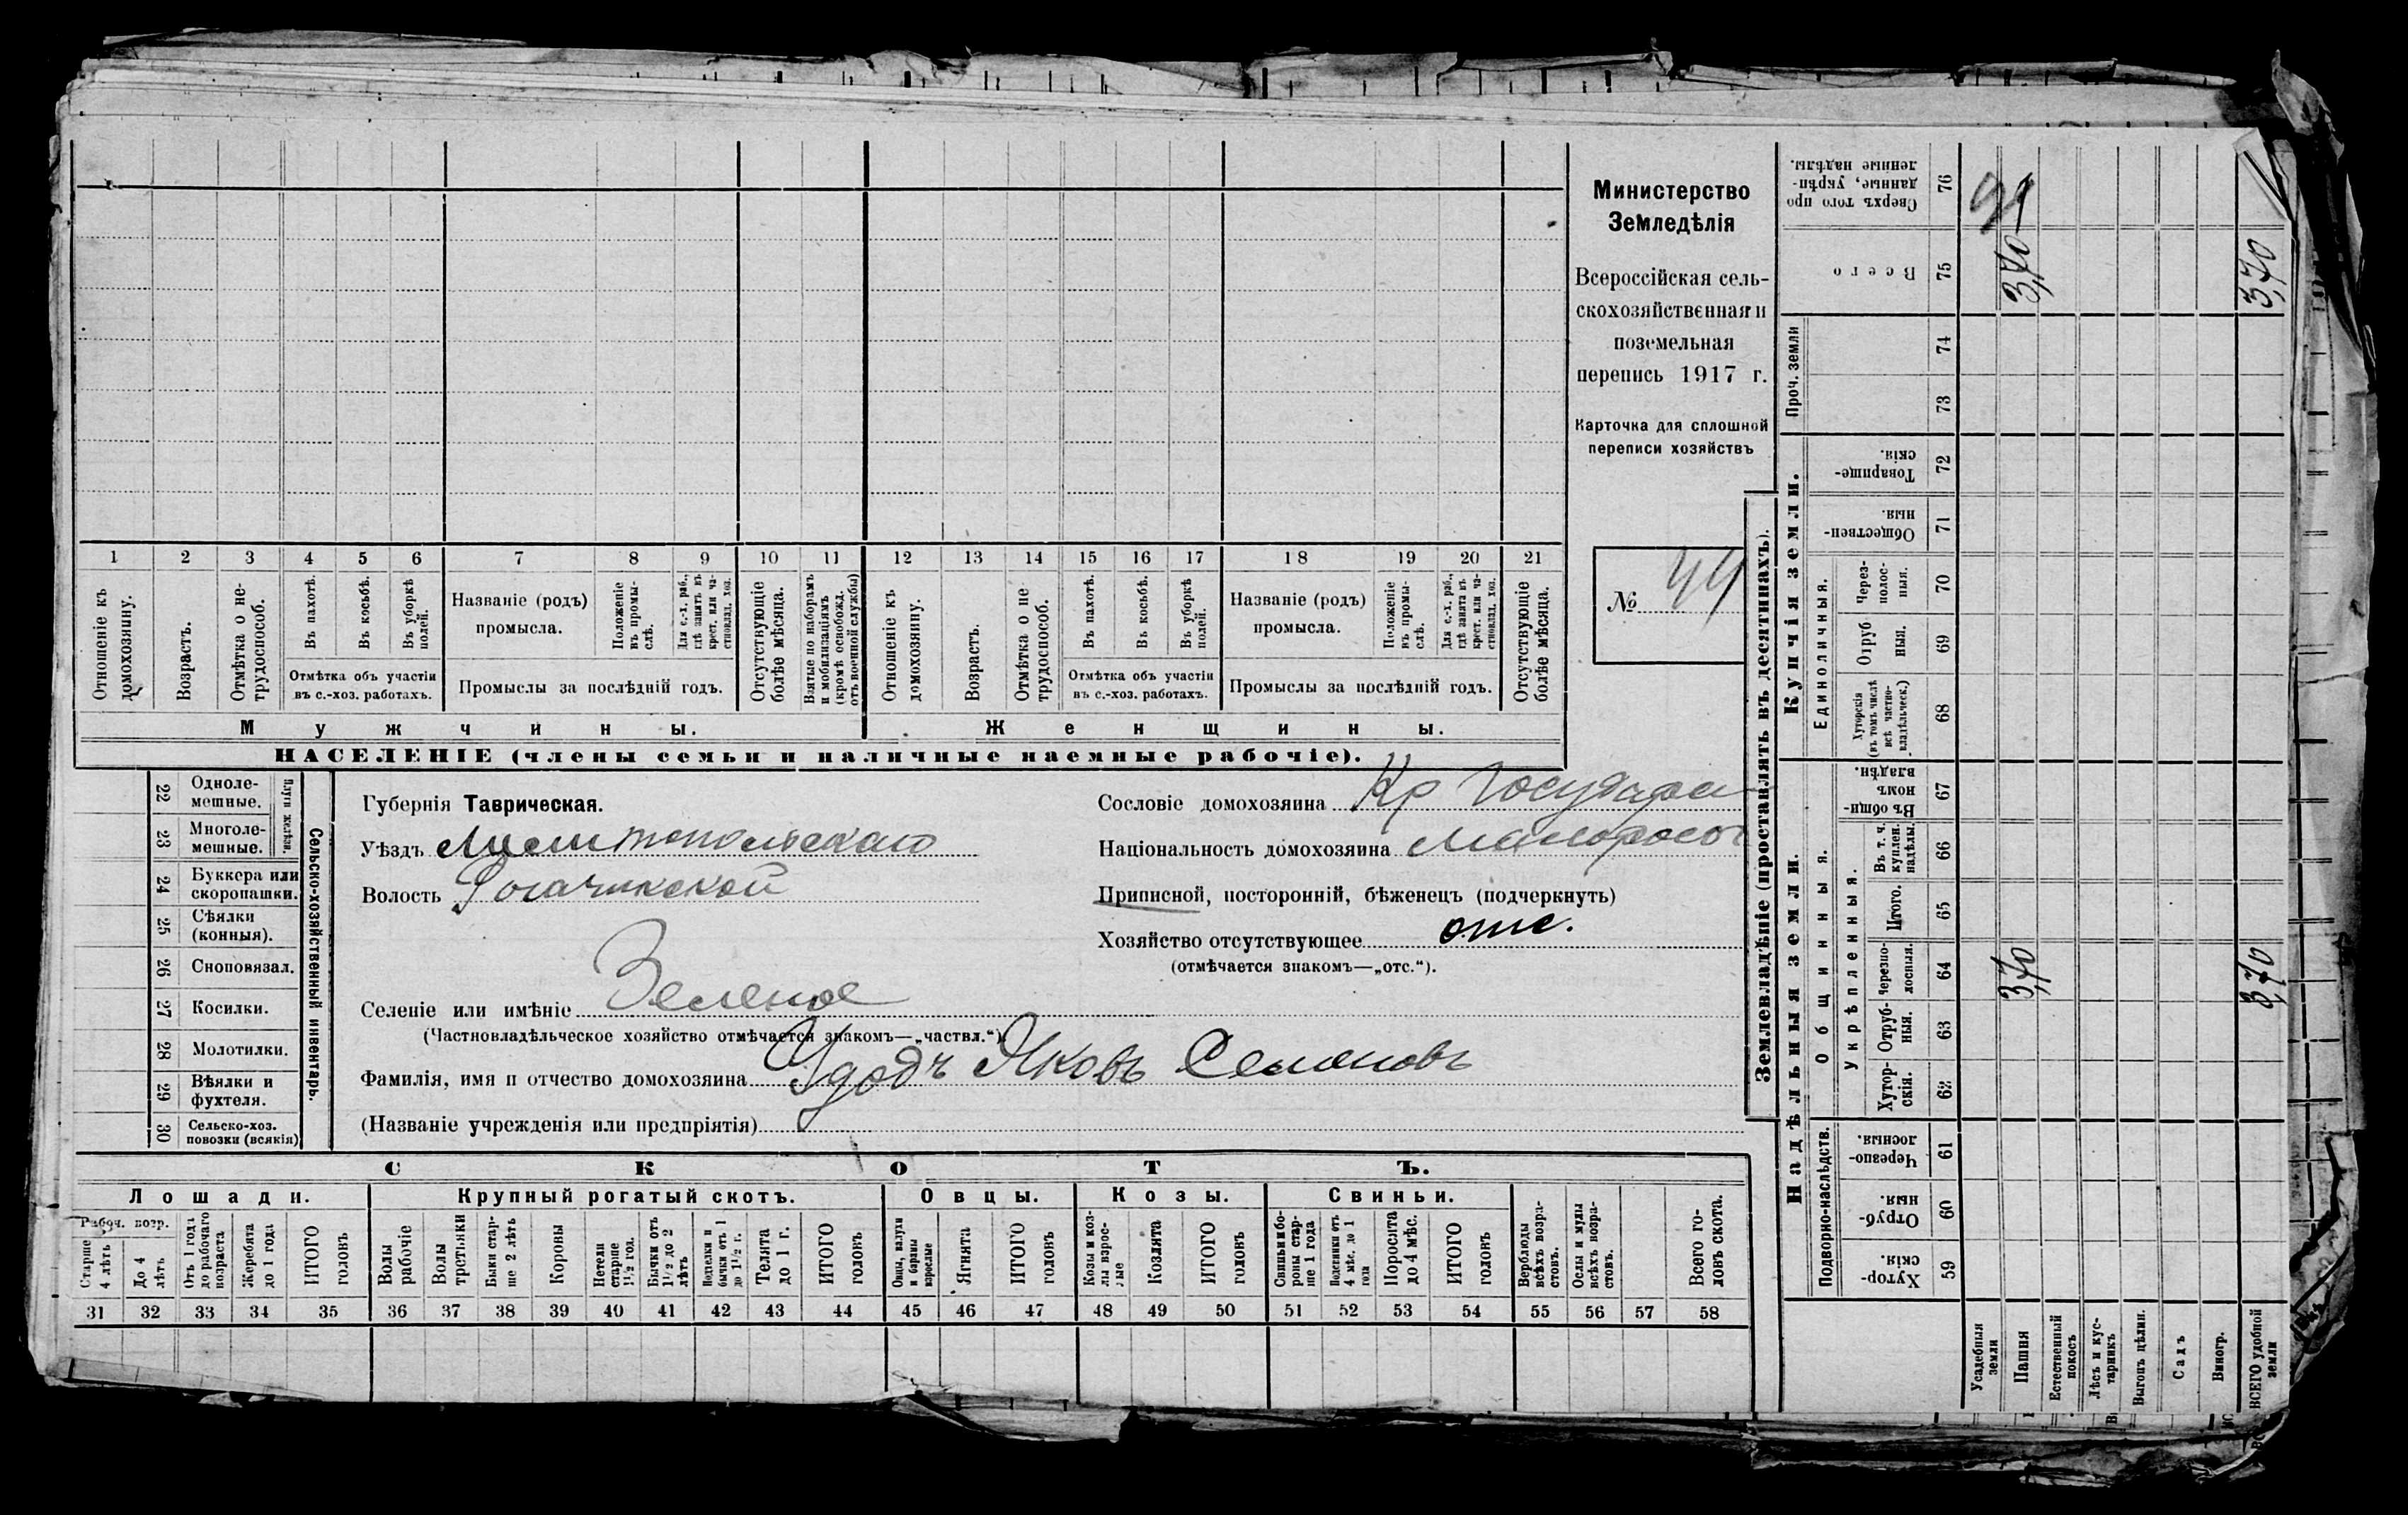 Министерство
Земледѣлія
Всероссійская сель-
скохозяйственная и
поземельная
перепись 1917 г.
Карточка для сплошной
переписи хозяйствъ
№ 44
1 2 3 4 5 6 7 8 9 10 11 12 13 14 15 16 17 18 19 20 21
Отношеніе къ домохозяину.
Возрастъ.
Отмѣтка о не-трудоспособ.
Въ пахотѣ.
Въ косьбѣ.
Въ уборкѣ полей.
Отмѣтка объ участіи
въ с.-хоз. работахъ.
Названіе (родъ)
промысла.
Положеніе въ промы-слѣ.
Для с.-х. раб., гдѣ занятъ въ крест. или ча-стновлад. хоз.
Промыслы за послѣдній годъ.
Отсутствующіе болѣе мѣсяца.
Взятые по наборамъ и мобилизаціямъ (кромѣ освобожд. отъ военной службы)
Отношеніе къ домохозяину.
Возрастъ.
Отмѣтка о не трудоспособ.
Въ пахотѣ.
Въ косьбѣ.
Въ уборкѣ полей.
Отмѣтка объ участіи
въ с.-хоз. работахъ.
Названіе (родъ)
промысла.
Положеніе въ промы-слѣ.
Для с.-х. раб., гдѣ занята въ крест. или ча-стновлад. хоз.
Промыслы за послѣдній годъ.
Отсутствующіе болѣе мѣсяца.
Мужчины.
Женщины.
НАСЕЛЕНІЕ (члены семьи и наличные наемные рабочіе).
Сельско-хозяйственный инвентарь.
Плуги желѣзн.
22 Одноле-мешные.
23 Многоле-мешные.
24 Буккера или скоропашки.
25 Сѣялки (конныя).
26 Сноповязал.
27 Косилки.
28 Молотилки.
29 Вѣялки и фухтеля.
30 Сельско-хоз. повозки (всякія)
Губернія Таврическая.
Уѣздъ Мелитопольскаго
Волость Рогачикской
Селеніе или имѣніе Зеленое
(Частновладѣльческое хозяйство отмѣчается знакомъ—„частвл.“).
Фамилія, имя и отчество домохозяина Удодъ Яковъ Семеновъ
(Названіе учрежденія или предпріятія)
Сословіе домохозяина Кр Государ
Національность домохозяина Малоросс
Приписной, посторонній, бѣженецъ (подчеркнуть)
Хозяйство отсутствующее отс.
(отмѣчается знакомъ—„отс.“).
СКОТЪ.
Лошади.
Крупный рогатый скотъ.
Овцы.
Козы.
Свиньи.
Рабоч. возр.
Старше 4 лѣтъ
До 4 лѣтъ
Отъ 1 года до рабочаго возраста
Жеребята до 1 года
ИТОГО головъ
Волы рабочіе
Волы третьяки
Быки стар-ше 2 лѣтъ
Коровы
Нетели старше 1½ год.
Бычки отъ 1½ до 2 лѣтъ
Подтелки и бычки отъ 1 до 1½ г.
Телята до 1 г.
ИТОГО головъ
Овцы, валухи и бараны взрослые
Ягнята
ИТОГО головъ
Козы и коз-лы взрос-лые
Козлята
ИТОГО головъ
Свиньи и бо-роны стар-ше 1 года
Подсвинки отъ 4 мѣс. до 1 года
Поросята до 4 мѣс.
ИТОГО головъ
Верблюды всѣхъ возра-стовъ.
Ослы и мулы всѣхъ возра-стовъ.
Всего го-ловъ скота.
31 32 33 34 35 36 37 38 39 40 41 42 43 44 45 46 47 48 49 50 51 52 53 54 55 56 57 58
Землевладѣніе (проставлять въ десятинахъ).
Надѣльныя земли.
Купчія земли.
Проч. земли
Подворно-наслѣдств.
Общинныя.
Укрѣпленныя.
Единоличныя.
Хутор-скія. 59
Отруб-ныя. 60
Черезпо-лосныя. 61
Хутор-скія. 62
Отруб-ныя. 63
Черезпо-лосныя. 64
Итого. 65
Въ т. ч. куплен. надѣлы. 66
Въ общи-номъ владѣн. 67
Хуторскія (въ томъ числѣ всѣ частно-владѣльческ.) 68
Отруб ныя. 69
Через-полос-ныя. 70
Обществен-ныя. 71
Товарище-скія. 72
73
74
Всего 75
Сверхъ того про данные, укрѣп-ленные надѣлы. 76
Усадебныя земли
Пашня 3,70 3,70
Естественный покосъ
Лѣсъ и кус-тарникъ
Выгонъ цѣлин.
Садъ
Виногр.
ВСЕГО удобной земли 3,70 3,70